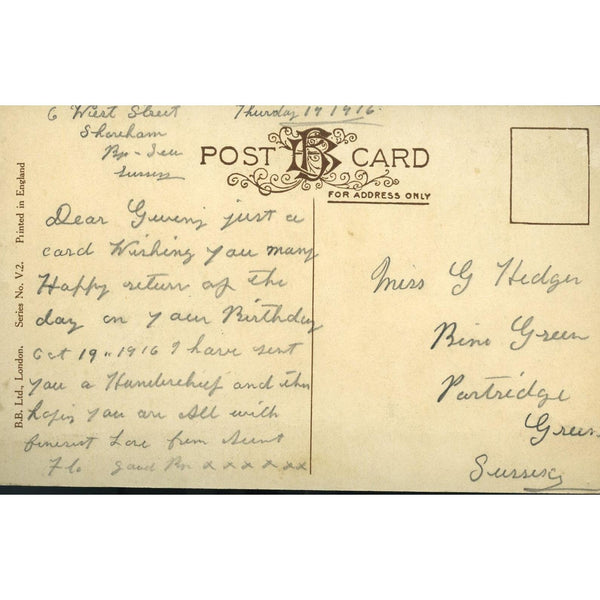 6 West Street
Shoreham
By-Sea
Sussex
Thursday 19 1916
POST CARD
FOR ADDRESS ONLY
B.B. Ltd., London. Series No. V.2. Printed in England
Dear just a
card Wishing you many
Happy return of the
day on your Birthday
Oct 19" 1916 I have sent
you a and
you are All with
Love from Aunt
Flo good x x x x x x
Miss G Hedger
Bine Green
Partridge
Green
Sussex